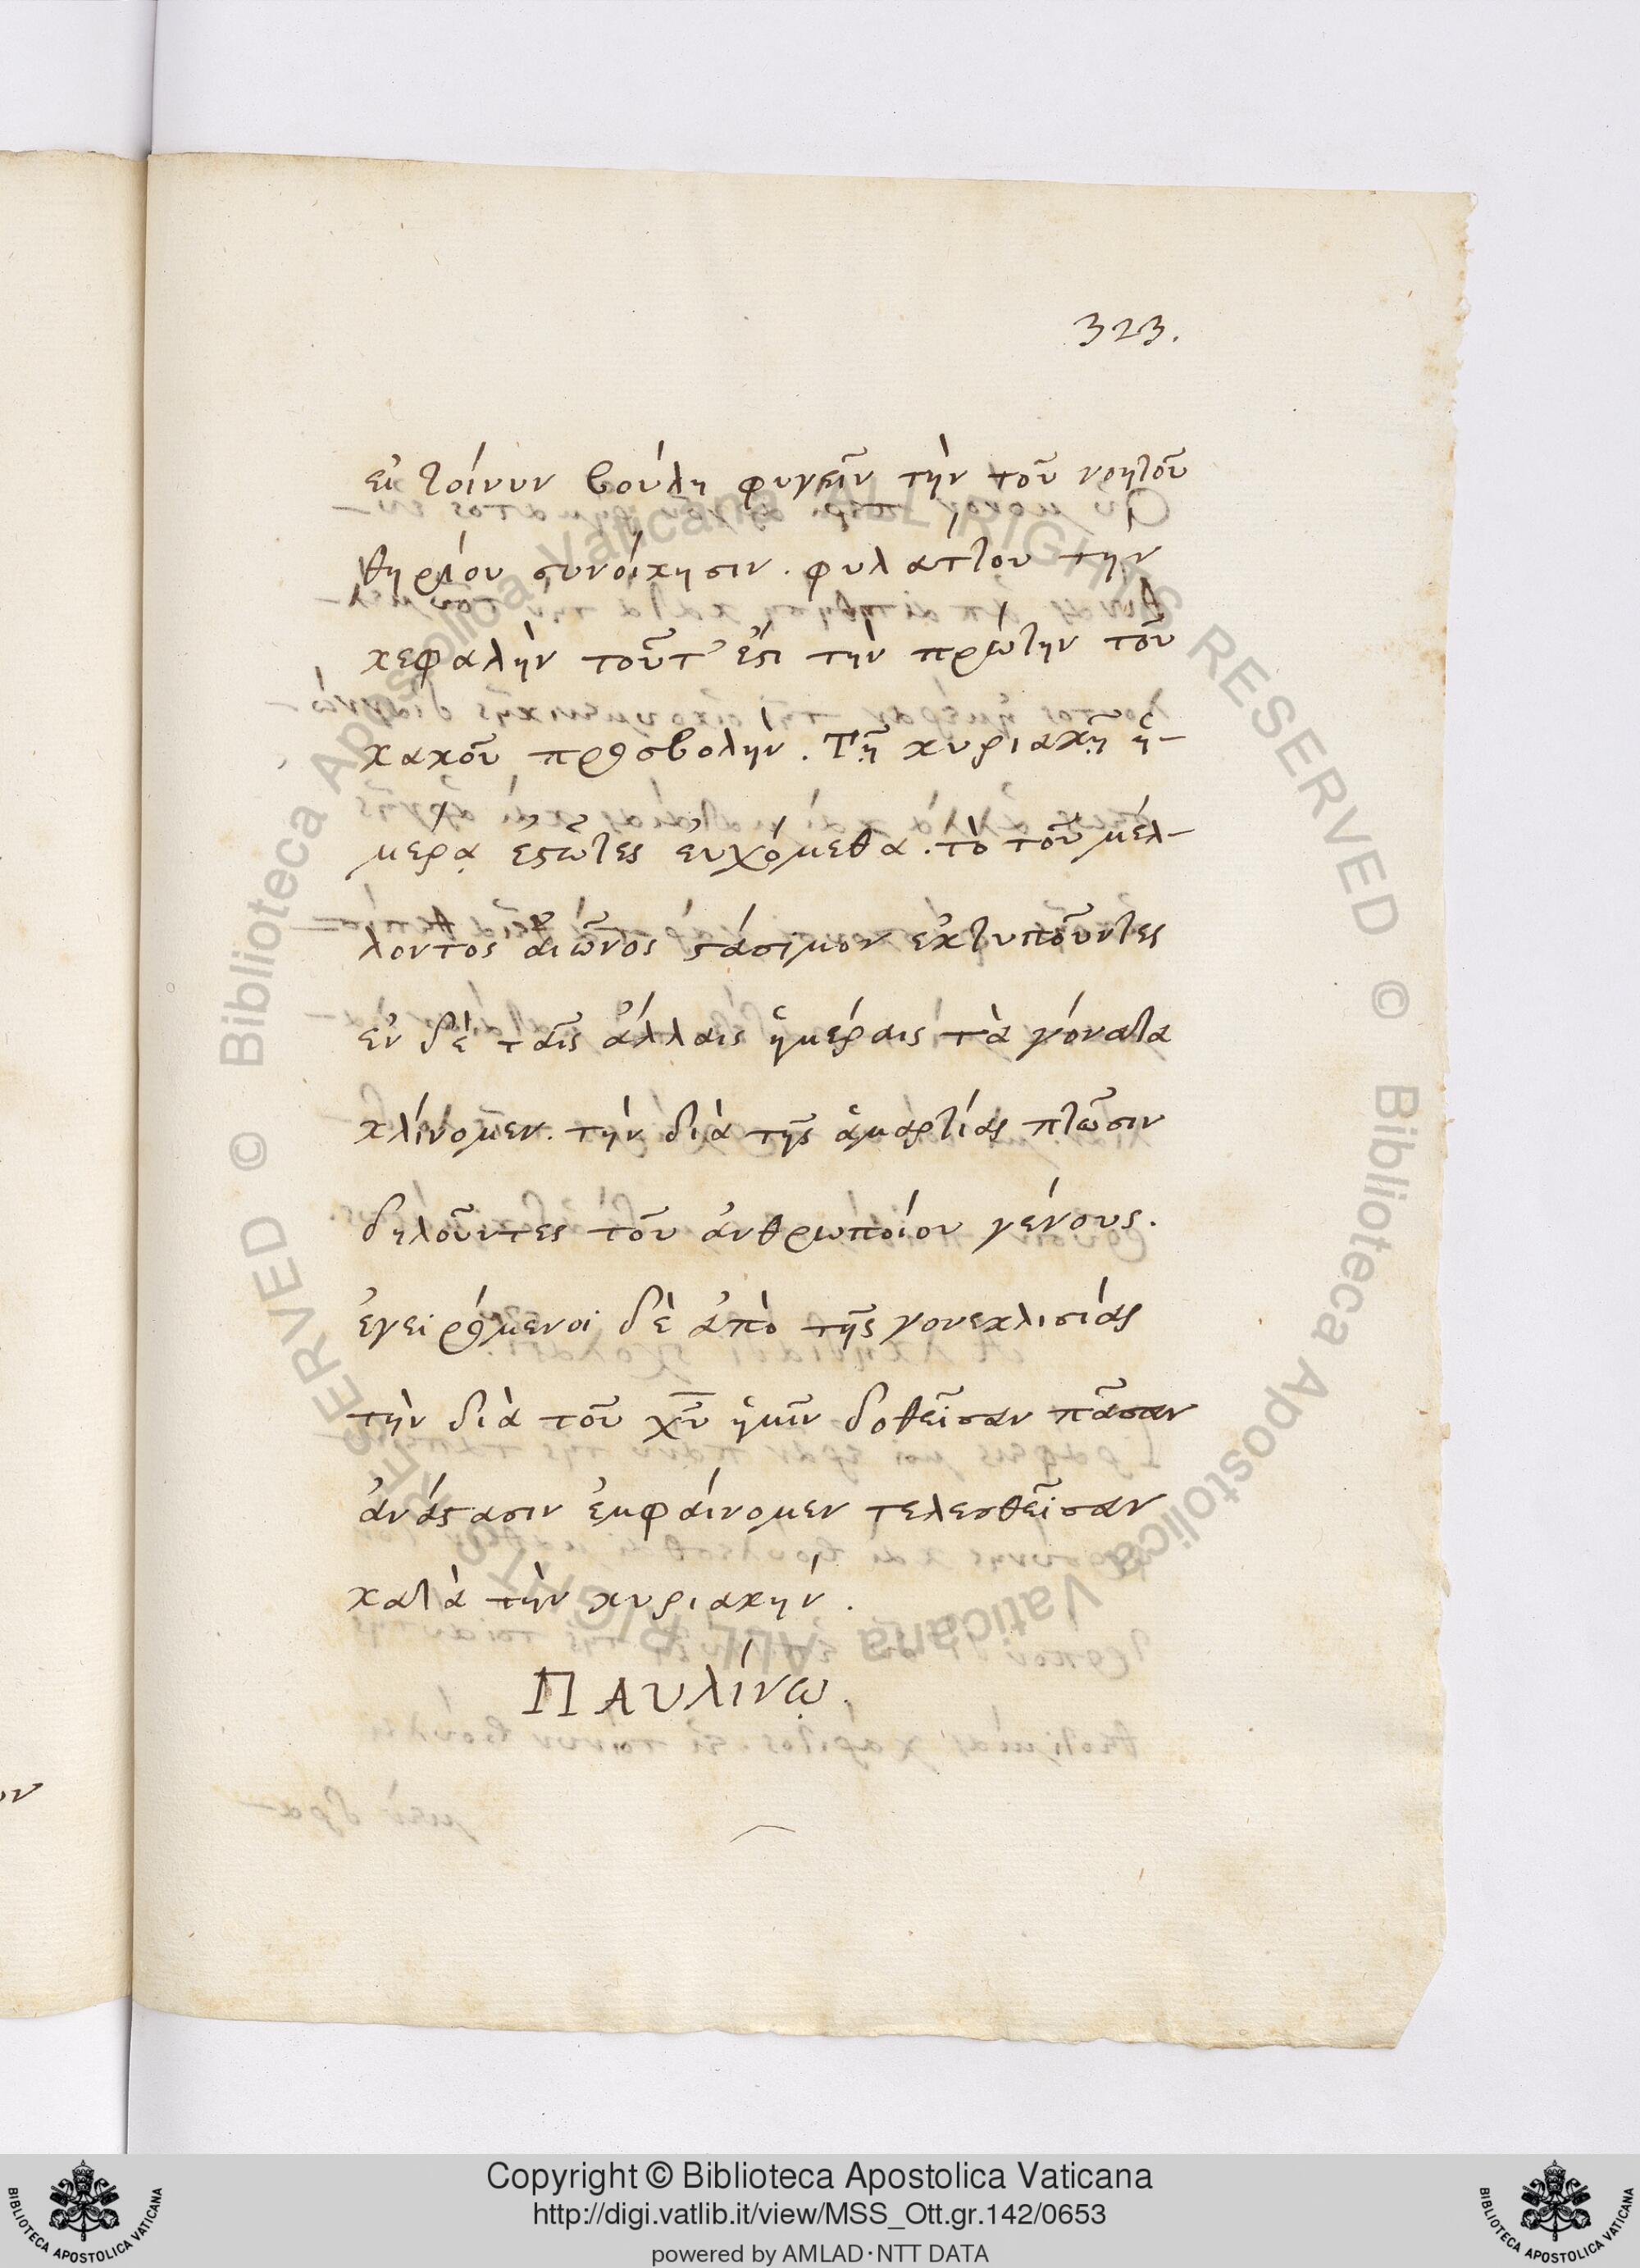 323.
εἰ τοίνυν βούλη φυγεῖν τὴν τοῦ νοητοῦ
θηρίου συνοίκησιν. φυλάττου τὴν
κεφαλὴν τοῦτ' ἔστι τὴν πρώτην τοῦ
κακοῦ προσβολήν. Τῇ κυριακῇ ἡ-
μέρᾳ ἑστῶτες εὐχόμεθα. τὸ τοῦ μέλ-
λοντος αἰῶνος στάσιμον ἐκτυποῦντες
ἐν δὲ ταῖς ἄλλαις ἡμέραις τὰ γόνατα
κλίνομεν. τὴν διὰ τῆς ἁμαρτίας πτῶσιν
δηλοῦντες τοῦ ἀνθρωποίου γένους.
ἐγειρόμενοι δὲ ἀπὸ τῆς γονεκλισίας
τὴν διὰ τοῦ χῦ ἡμῖν δοθεῖσαν πᾶσαν
ἀνάστασιν ἐμφαίνομεν τελεσθεῖσαν
κατὰ τὴν κυριακήν.
ΠΑυλίνῳ.
Copyright © Biblioteca Apostolica Vaticana
http://digi.vatlib.it/view/MSS_Ott.gr.142/0653
powered by AMLAD·NTT DATA